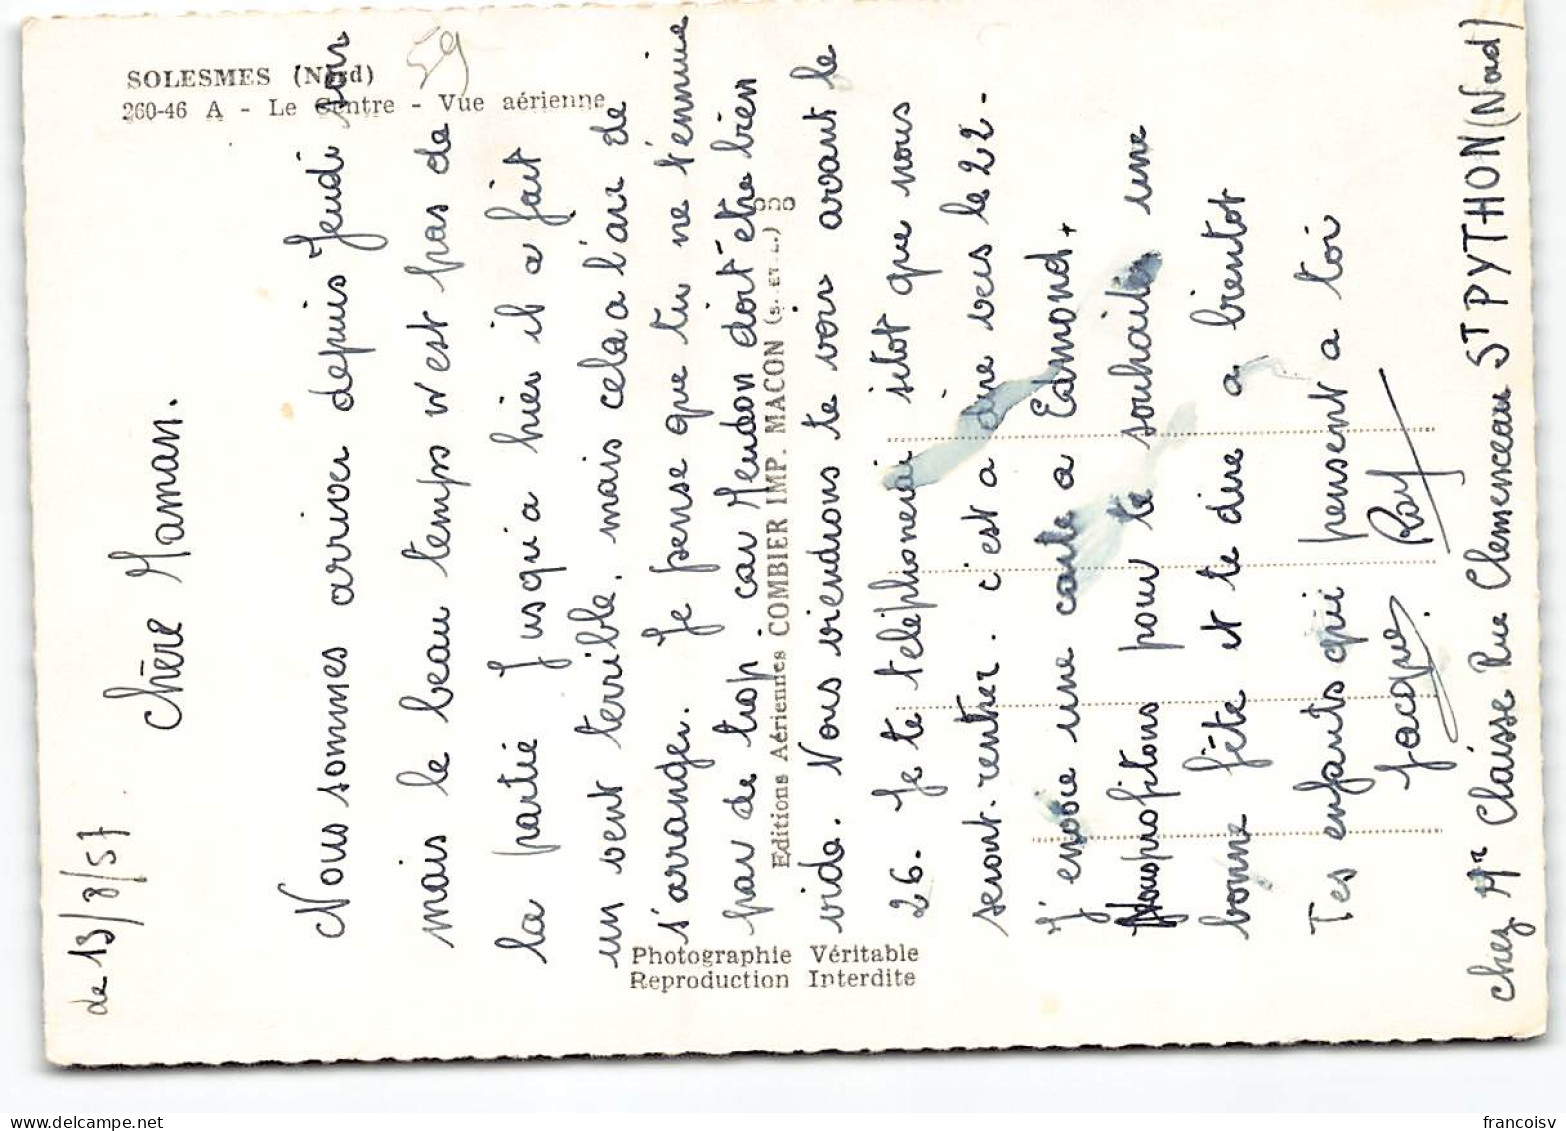 SOLESMES (Nord)
260-46 A - Le Centre - Vue aérienne
59
de 13/8/57
Chère Maman.
Nous sommes arriver depuis Jeudi soir
mais le beau temps n'est pas de
la partie Jusqu'a hier il a fait
un vent terrible. mais cela a l'air de
s'arranger. Je pense que tu ne t'ennuie
par de trop. car Meudon doit être bien
vide. Nous viendrons te voir avant le
26. Je te telephonerai sitot que nous
seront rentrer. c'est a dire vers le 22-
J'envoie une carte a Edmond +
Nous profitons pour te souhaiter une
bonne fête et te dire a bientot
Tes enfants qui pensent a toi
Jacque. Ray
chez Mr Claisse Rue Clemenceau ST PYTHON (Nord)
Editions Aériennes COMBIER IMP. MACON (S.-ET-L.)
Photographie Véritable
Reproduction Interdite
francoisv